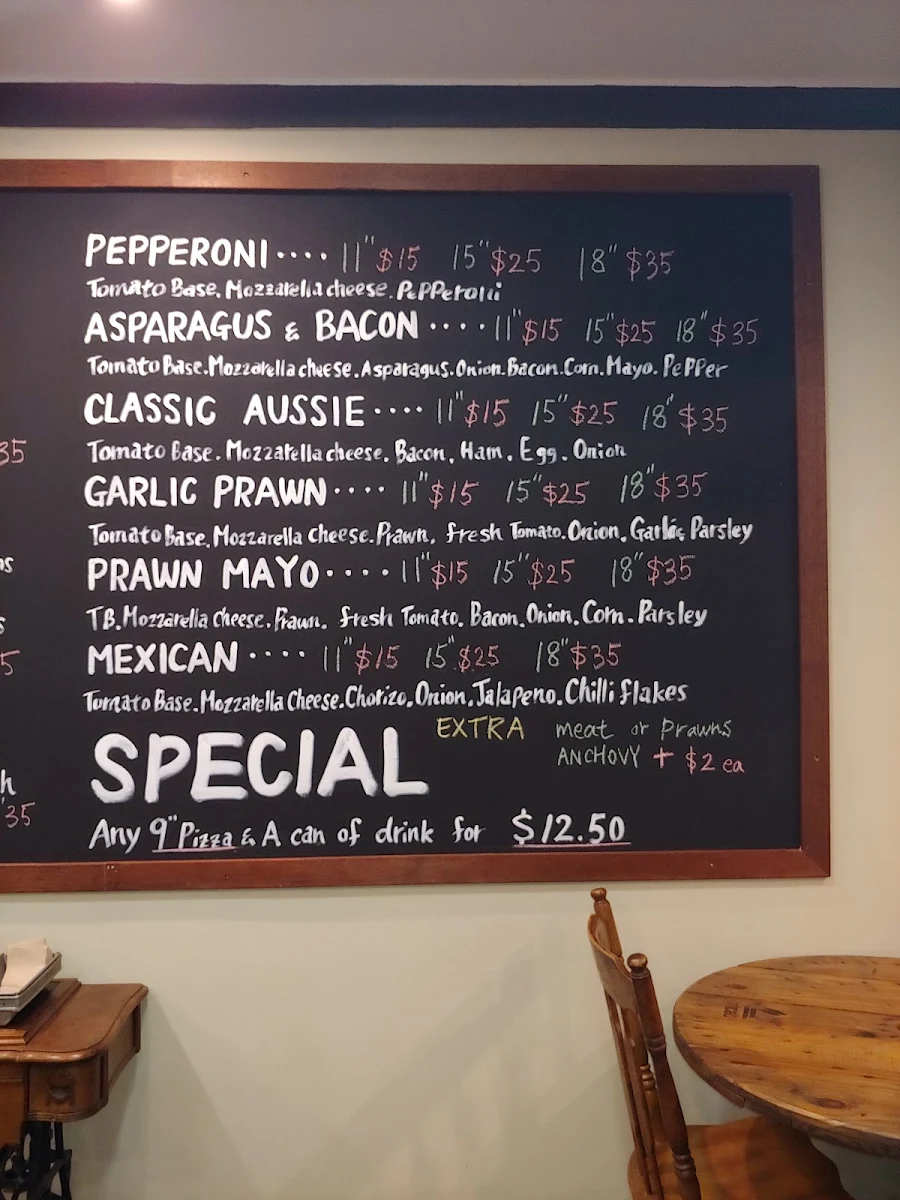 PEPPERONI.... 11" $15 15" $25 18" $35
Tomato Base. Mozzarella cheese. PePPeroni
ASPARAGUS & BACON .... 11" $15 15" $25 18" $35
Tomato Base. Mozzarella cheese. Asparagus. Onion. Bacon. Corn. Mayo. PePPer
CLASSIC AUSSIE.... 11" $15 15" $25 18" $35
Tomato Base. Mozzarella cheese. Bacon, Ham, Egg. Onion
35
GARLIC PRAWN.... 11" $15 15" $25 18" $35
Tomato Base. Mozzarella cheese. Prawn, fresh Tomato. Onion, Garlic, Parsley
PRAWN MAYO.... 11" $15 15" $25 18" $35
TB. Mozzarella cheese. Prawn. fresh Tomato. Bacon. Onion. Corn. Parsley
MEXICAN .... 11" $15 15" $25 18" $35
5
Tomato Base. Mozzarella Cheese. Chorizo. Onion. Jalapeno. Chilli flakes
EXTRA meat or Prawns
ANCHOVY + $2 ea
SPECIAL
h
35
Any 9" Pizza & A can of drink for $12.50